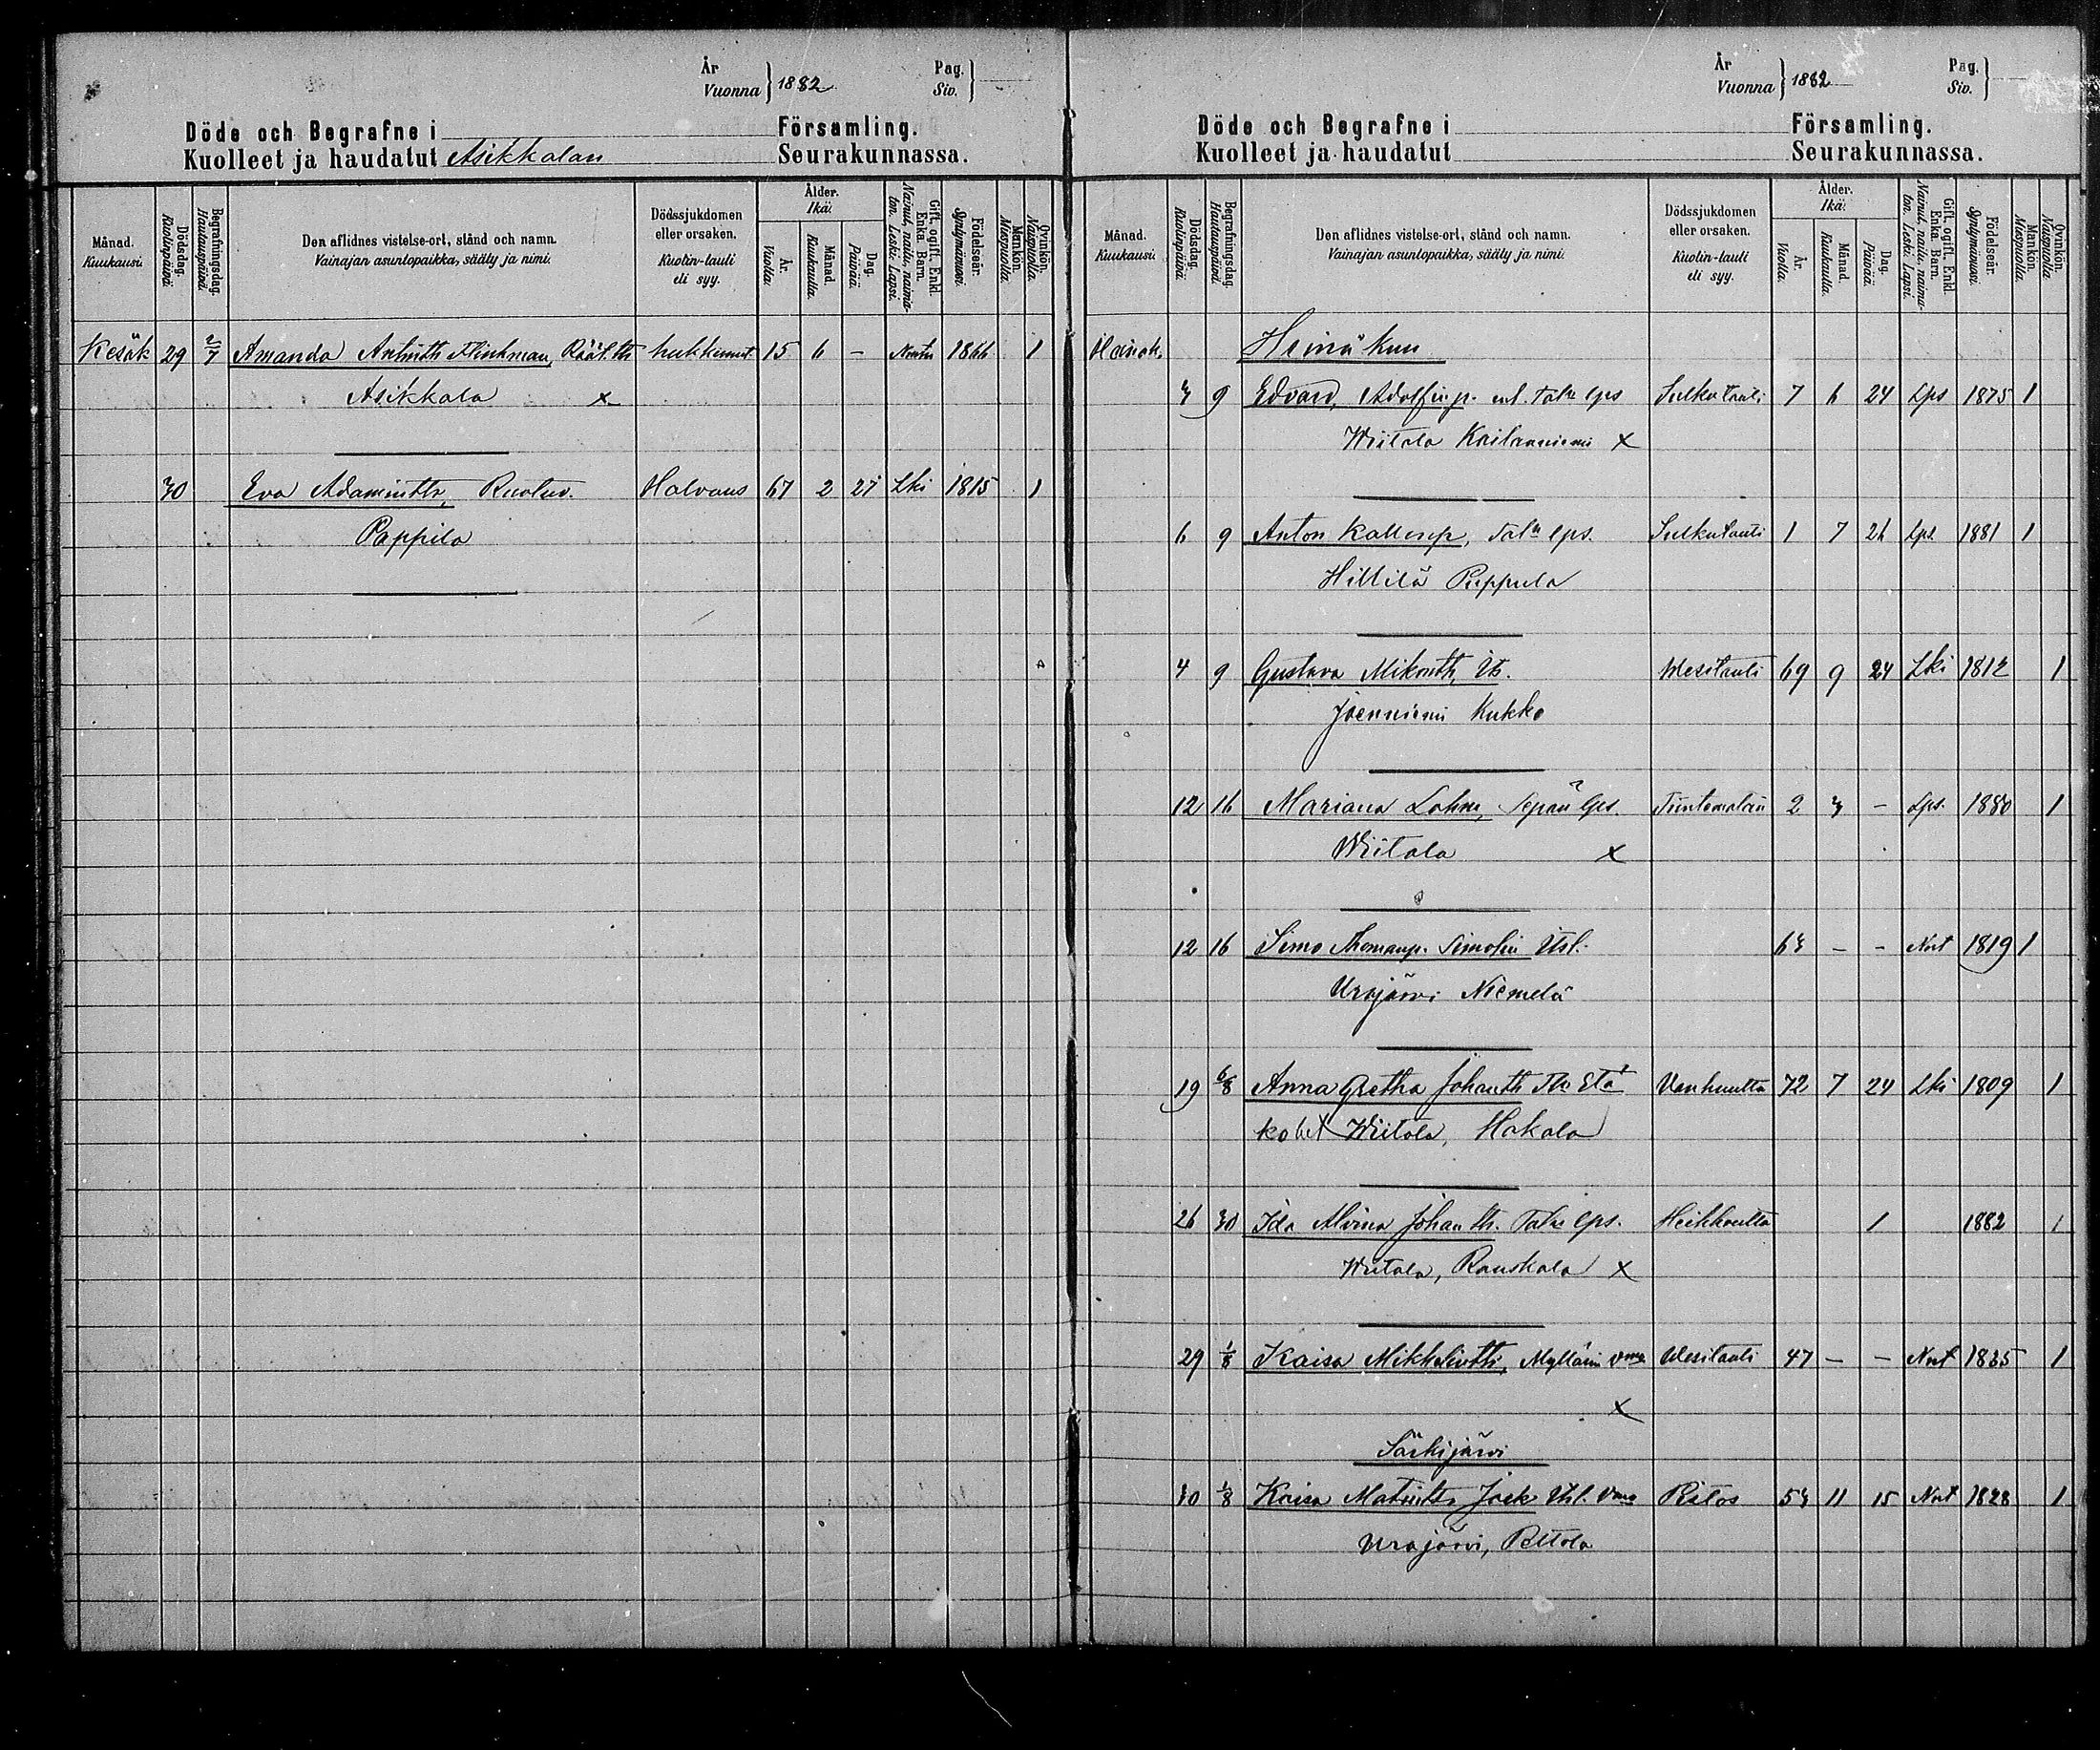 År
Vuonna } 1882
Pag.
Siv. }
Döde och Begrafne i Församling.
Kuolleet ja haudatut Asikkalan Seurakunnassa.
Månad. Kuukausi.
Dödsdag. Kuolinpäivä.
Begrafningsdag. Hautauspäivä.
Den aflidnes vistelse-ort, stånd och namn.
Vainajan asuntopaikka, sääty ja nimi.
Dödssjukdomen eller orsaken.
Kuolin-tauti eli syy.
Ålder. Ikä.
År. Vuotta.
Månad. Kuukautta.
Dag. Päivää.
Gift, ogift. Enkl. Enka. Barn.
Nainut, naitu, naimaton. Leski. Lapsi.
Födelseår. Syntymävuosi.
Mankön. Miespuolta.
Qvinkön. Naispuolta.
Kesäk 29 2/7 Amanda Antintr Flinkman, Räät. tr hukkunut 15 6 – 1866 1
Asikkala x
30 Eva Adamintr, Ruotuv. Halvaus 67 2 27 Lki 1815 1
Pappila
År
Vuonna } 1882
Pag.
Siv. }
Döde och Begrafne i Församling.
Kuolleet ja haudatut Seurakunnassa.
Månad. Kuukausi.
Dödsdag. Kuolinpäivä.
Begrafningsdag. Hautauspäivä.
Den aflidnes vistelse-ort, stånd och namn.
Vainajan asuntopaikka, sääty ja nimi.
Dödssjukdomen eller orsaken.
Kuolin-tauti eli syy.
Ålder. Ikä.
År. Vuotta.
Månad. Kuukautta.
Dag. Päivää.
Gift, ogift. Enkl. Enka. Barn.
Nainut, naitu, naimaton. Leski. Lapsi.
Födelseår. Syntymävuosi.
Mankön. Miespuolta.
Qvinkön. Naispuolta.
Heinäk. Heinäkuu
3 9 Edvard, Adolfinp. Taln lps Sulkutauti 7 6 24 Lps 1875 1
Wiitala Kaitanniemi x
6 9 Anton Kallenp, Taln lps. Sulkutauti 1 7 26 Lps. 1881 1
Hillilä Puppula
4 9 Gustava Mikontr, Its. Wesitauti 69 9 24 Lki 1812 1
Joenniemi Kukko
12 16 Mariana Lohm, Sepän lps. Tuntematoin 2 3 – Lps. 1880 1
Wiitala x
12 16 Simo Thomanp. Simolin Itsl. 63 – – Nut 1819 1
Urajärvi Niemelä
19 6/8 Anna Gretha Johantr Wanhuutta 72 7 24 Lki 1809 1
Wiitala, Hakala
26 30 Ida Alvina Johantr. Taln lps. Heikkoutta 1 1882 1
Wiitala, Rauskala x
29 1/8 Kaisa Mikkelintr, Myllärin vmo Wesitauti 47 – – Nut 1835 1
x
Särkijärvi
30 1/8 Kaisa Matintr Jack Itsl. vmo Pistos 53 11 15 Nut 1828 1
Urajärvi, Peltola